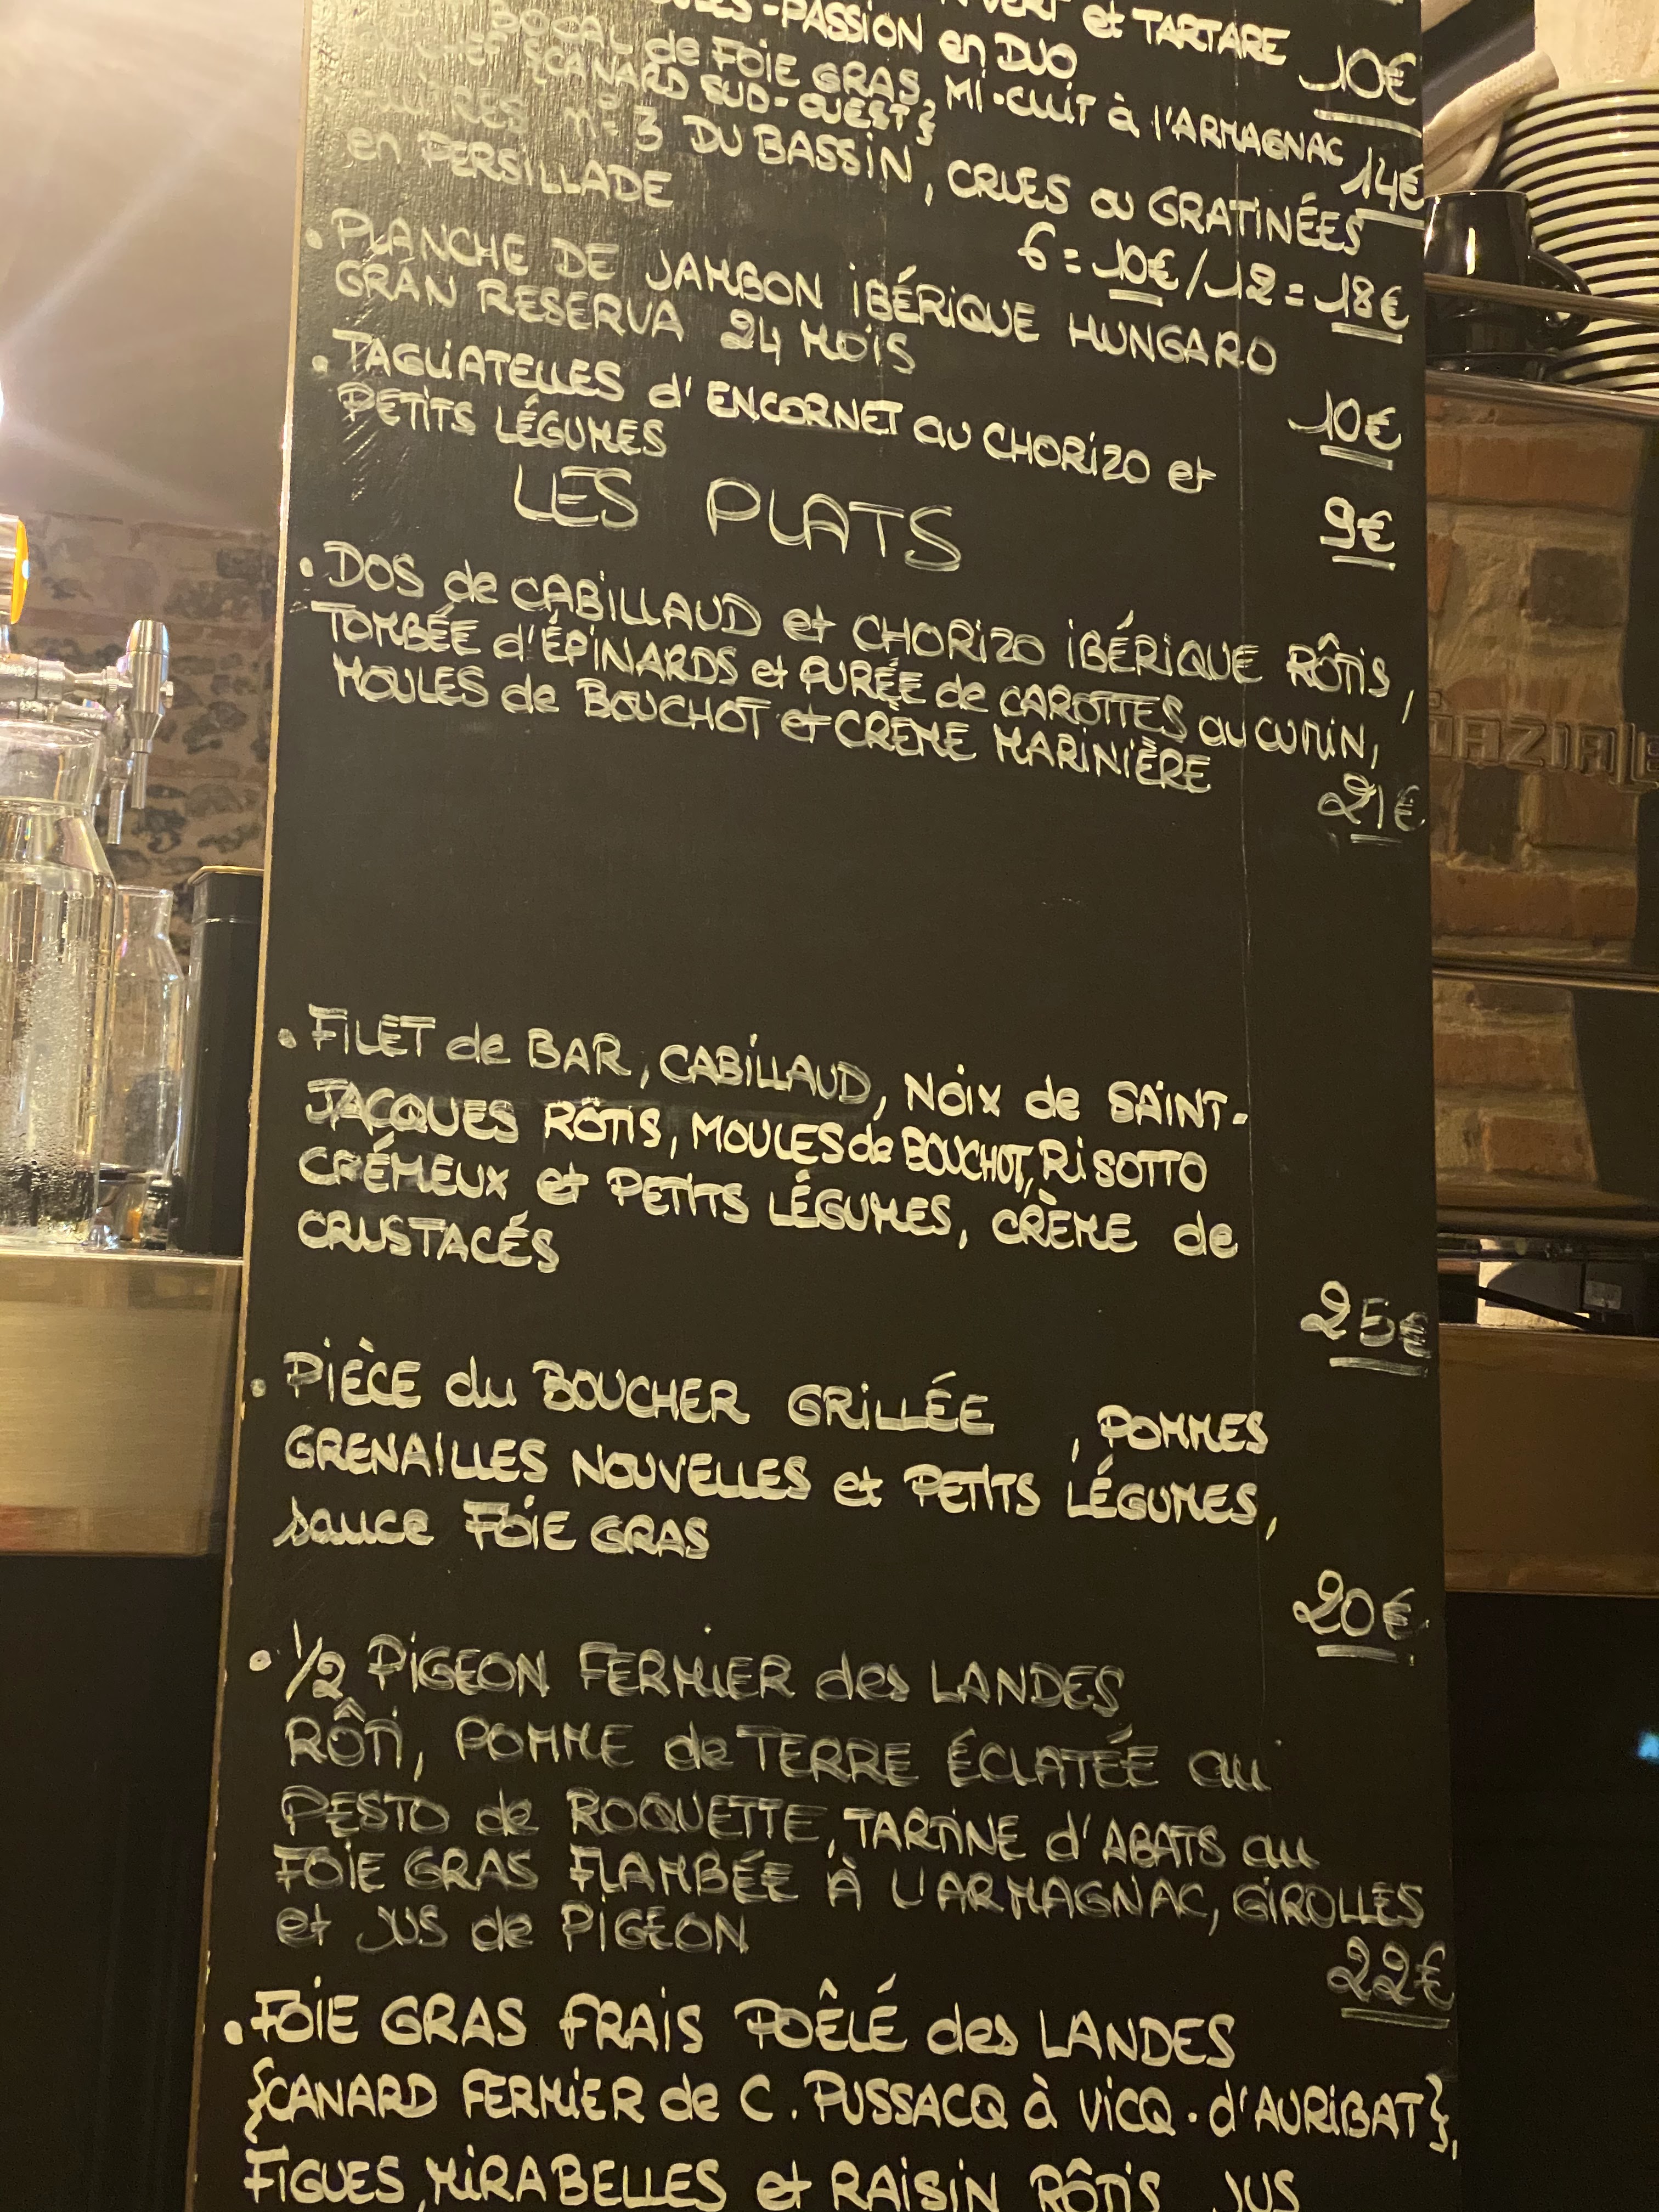 et TARTARE
-PASSION en DUO 10€
BOCAL de FOIE GRAS, Mi-CUIT à l'ARMAGNAC
{CANARD SUD-OUEST} 14€
n°3 DU BASSIN, CRUES ou GRATINÉES
en PERSILLADE
6 = 10€ / 12 = 18€
• PLANCHE DE JAMBON IBÉRIQUE HUNGARO
GRAN RESERVA 24 MOIS
10€
• TAGLIATELLES d'ENCORNET au CHORIZO et
PETITS LÉGUMES
9€
LES PLATS
• DOS de CABILLAUD et CHORIZO IBÉRIQUE RÔTIS,
TOMBÉE d'ÉPINARDS et PURÉE de CAROTTES au CUMIN,
MOULES de BOUCHOT et CRÈME MARINIÈRE
21€
• FILET de BAR, CABILLAUD, NOIX de SAINT-
JACQUES RÔTIS, MOULES de BOUCHOT, RISOTTO
CRÉMEUX et PETITS LÉGUMES, CRÈME de
CRUSTACÉS
25€
• PIÈCE du BOUCHER GRILLÉE , POMMES
GRENAILLES NOUVELLES et PETITS LÉGUMES,
sauce FOIE GRAS
20€
• 1/2 PIGEON FERMIER des LANDES
RÔTI, POMME de TERRE ÉCLATÉE au
PESTO de ROQUETTE, TARTINE d'ABATS au
FOIE GRAS FLAMBÉE À L'ARMAGNAC, GIROLLES
et JUS de PIGEON
22€
• FOIE GRAS FRAIS POÊLÉ des LANDES
{CANARD FERMIER de C. PUSSACQ à VICQ-d'AURIBAT},
FIGUES, MIRABELLES et RAISIN RÔTIS JUS